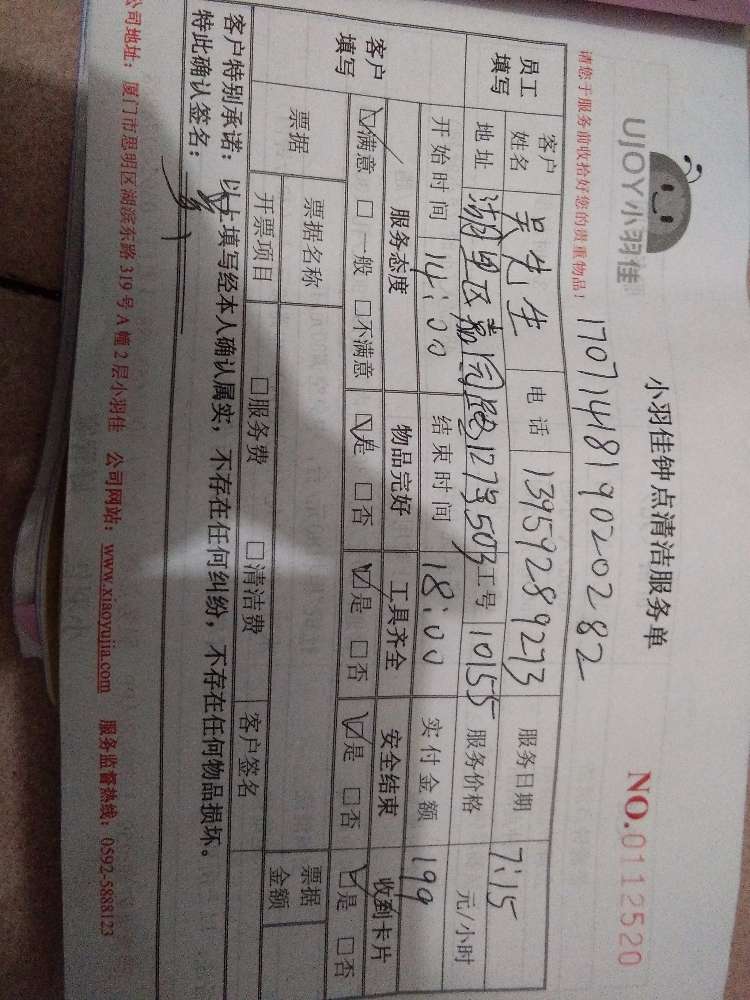 UJOY小羽佳
小羽佳钟点清洁服务单
NO.0112520
请您于服务前收拾好您的贵重物品！
170714819020282
员工填写 客户姓名 吴先生 电话 13959289273 服务日期 7:15
地址 湖里区 路1273,503 工号 10155 服务价格 元/小时
开始时间 14:00 结束时间 18:00 实付金额 199
客户填写 服务态度 物品完好 工具齐全 安全结束 收到卡片
☑满意 □一般 □不满意 ☑是 □否 ☑是 □否 ☑是 □否 ☑是 □否
票据 票据名称 客户签名 票据金额
开票项目 □服务费 □清洁费
客户特别承诺：以上填写经本人确认属实，不存在任何纠纷，不存在任何物品损坏。
特此确认签名：
公司地址：厦门市思明区湖滨东路319号A幢2层小羽佳 公司网站：www.xiaoyujia.com 服务监督热线：0592-5888123